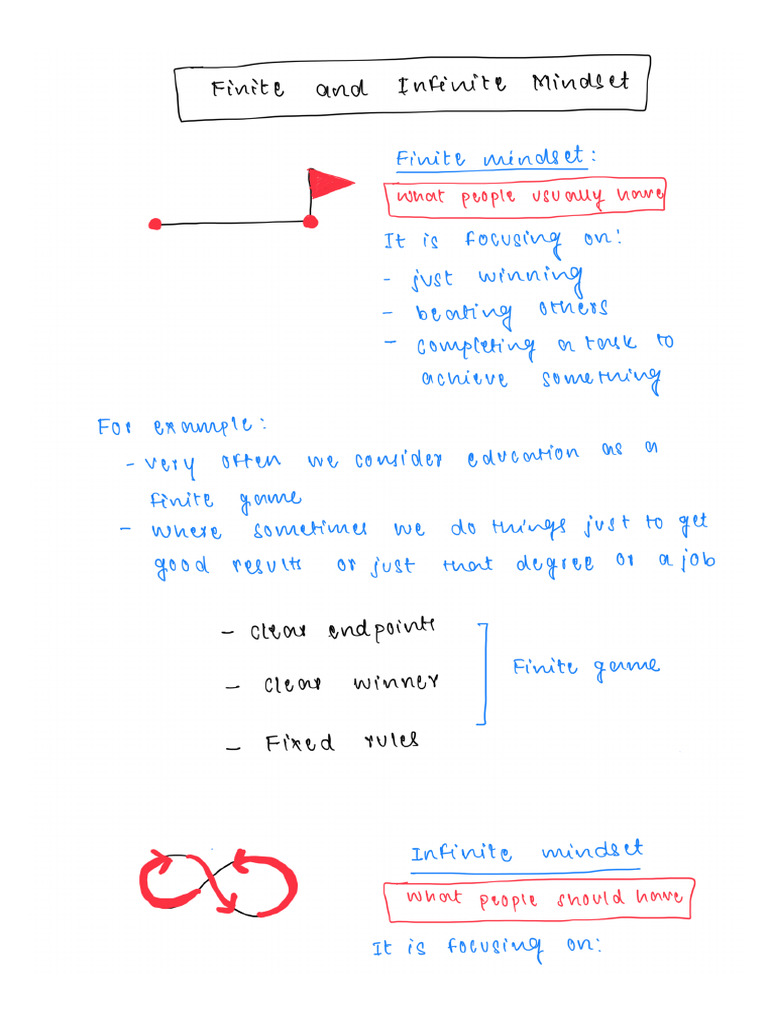 Finite and Infinite Mindset
Finite mindset:
What people usually have
It is focusing on:
- just winning
- beating others
- completing a task to
achieve something
For example:
- very often we consider education as a
finite game
- where sometimes we do things just to get
good results or just that degree or a job
- Clear endpoints
- Clear winner
- Fixed rules
Finite game
Infinite mindset
What people should have
It is focusing on: